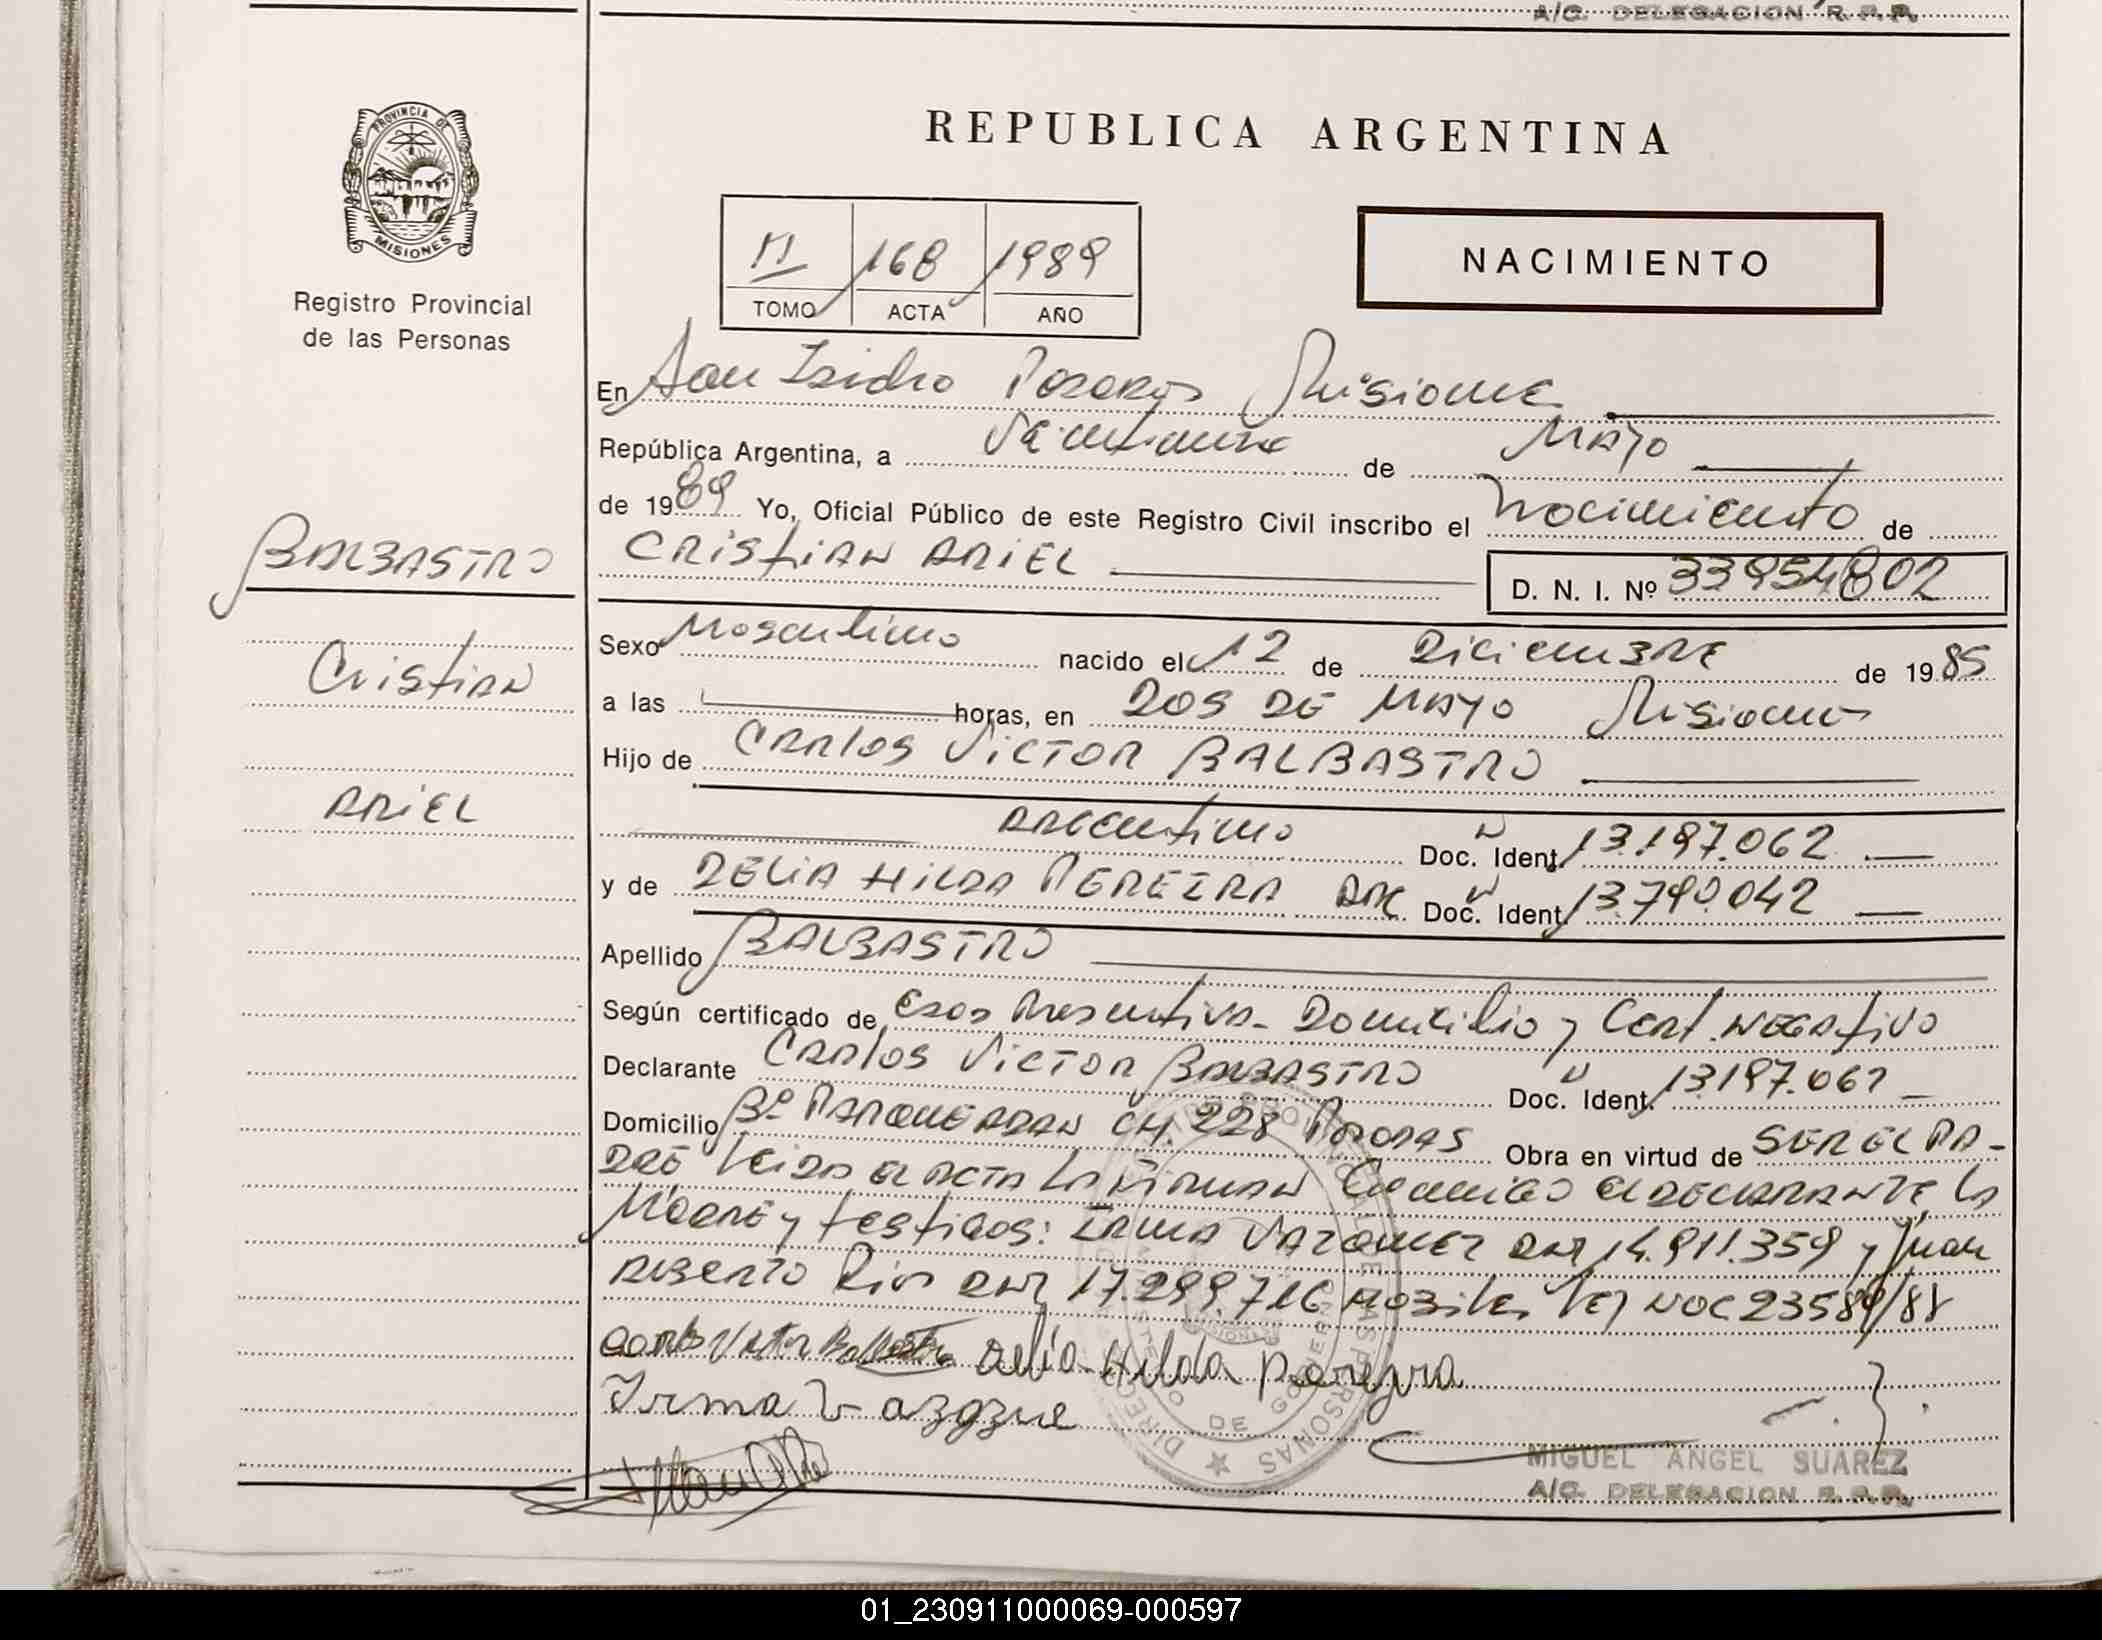 A/C. DELEGACION R.P.P.
PROVINCIA DE
MISIONES
Registro Provincial
de las Personas
REPUBLICA ARGENTINA
II 168 1989
TOMO ACTA AÑO
NACIMIENTO
En San Isidro Posadas Misiones
República Argentina, a de Mayo
de 1989 Yo, Oficial Público de este Registro Civil inscribo el Nacimiento de
CRISTIAN ARIEL D. N. I. Nº 33954802
BALBASTRO
Cristian
ARIEL
Sexo Masculino nacido el 12 de Diciembre de 1985
a las horas, en DOS DE MAYO Misiones
Hijo de Carlos Victor BALBASTRO
Argentino Doc. Ident. 13.197.062
y de DELIA HILDA PEREIRA ARG Doc. Ident. 13.790.042
Apellido BALBASTRO
Según certificado de Domicilio y Cert. Negativo
Declarante Carlos Victor BALBASTRO Doc. Ident. 13.197.062
Domicilio Bº CH. 228 Posadas Obra en virtud de SER EL PA-
DRE Leida el acta la firman conmigo el declarante, la
Madre y testigos: Irma Vazquez DNI 14.911.359 y Juan
Alberto Rios DNI 17.299.716 Ley NAC 23589/88
Carlos Victor Balbastro Delia Hilda Pereyra
Irma Vazqzue
MIGUEL ANGEL SUAREZ
A/C. DELEGACION R.P.P.
01_230911000069-000597